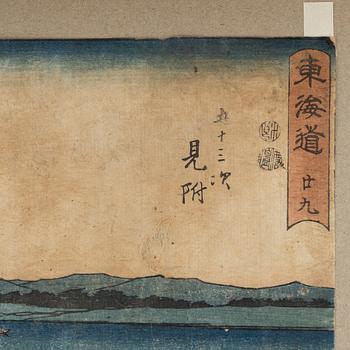 東海道
廿九
五十三次
見附